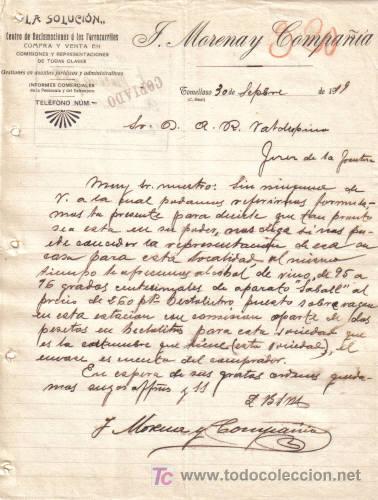 "LA SOLUCIÓN„
Centro de Reclamaciones á los Ferrocarriles
COMPRA Y VENTA EN
COMISIONES Y REPRESENTACIONES
DE TODAS CLASES
Gestiones en asuntos jurídicos y administrativos
INFORMES COMERCIALES
de la Península y del Extranjero
TELÉFONO NÚM.
J. Morena y Compañia
COPIADO
Tomelloso 30 de Sepbre de 191
(C. Real)
Sr. D. A. R. Valdespino
Jerez de la Frontera
Muy sr. nuestro: Sin ninguna de
V. a la cual podamos referirnos formula-
mos la presente para decirle que tan pronto
sea esta en su poder, nos diga si nos pue-
de conceder la representación de esa su
casa para esta localidad al mismo
tiempo le ofrecemos alcohol de vino, de 95 a
96 grados centesimales de aparato "Saball" al
precio de 260 pts hectolitro puesto sobre vagon
en esta estación con comision aparte de dos
pesetas en hectolitro para esta sociedad que
es la costumbre que tiene (esta sociedad), el
envase es cuenta del comprador.
En espera de sus gratas ordenes queda-
mos suyos affmos y SS
J. Morena y Compañia
TC
todocoleccion
© www.todocoleccion.net